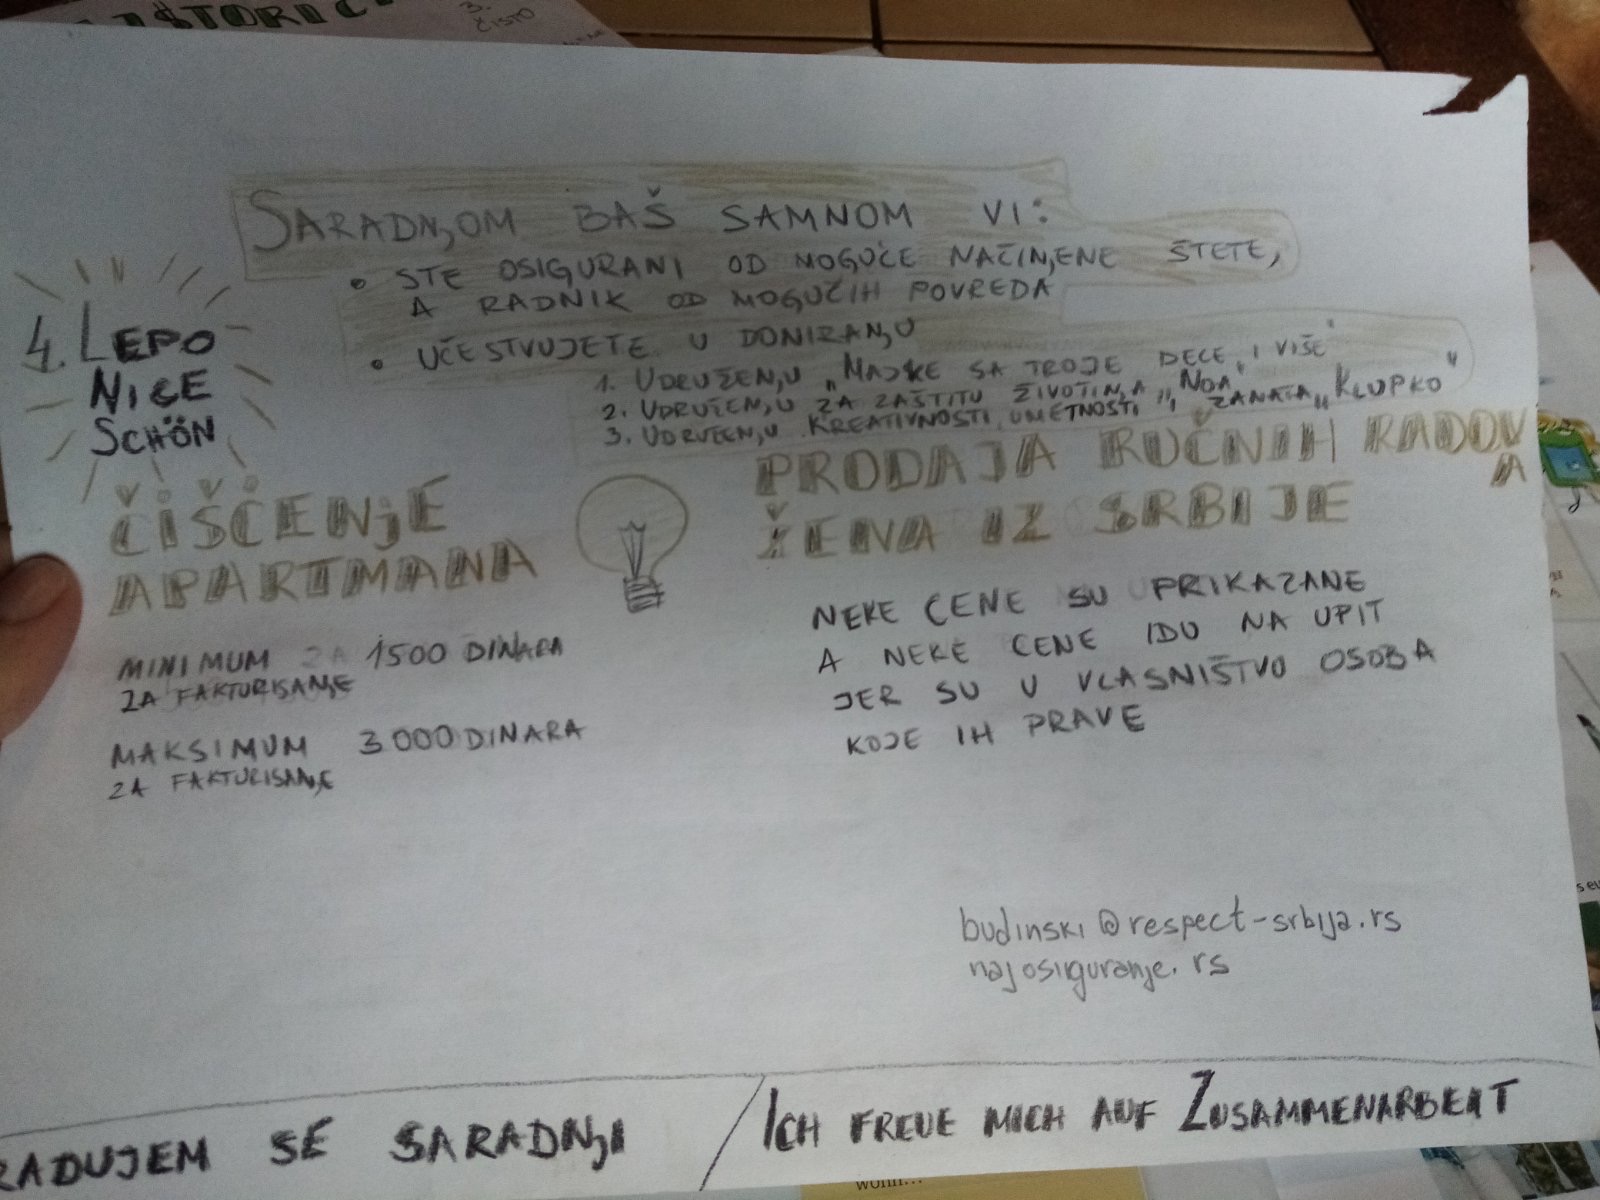 3.
ČISTO
SARADNJOM BAŠ SAMNOM VI:
• STE OSIGURANI OD MOGUĆE NAČINJENE ŠTETE,
A RADNIK OD MOGUČIH POVREDA
• UČESTVUJETE U DONIRANJU
1. UDRUŽENJU „MAJKE SA TROJE DECE I VIŠE"
2. UDRUŽENJU ZA ZAŠTITU ŽIVOTINJA „NOA"
3. UDRUŽENJU KREATIVNOSTI, UMETNOSTI I ZANATA „KLUPKO"
4. LEPO
NICE
SCHÖN
ČIŠĆENjE
APARTMANA
MINIMUM ZA 1500 DINARA
ZA FAKTURISANJE
MAKSIMUM 3000 DINARA
ZA FAKTURISANJE
PRODAJA RUČNIH RADOVA
ŽENA IZ SRBIJE
NEKE CENE SU PRIKAZANE
A NEKE CENE IDU NA UPIT
JER SU U VLASNIŠTVO OSOBA
KOJE IH PRAVE
budinski@respect-srbija.rs
najosiguranje.rs
RADUJEM SE SARADNJI / ICH FREUE MICH AUF ZUSAMMENARBEIT